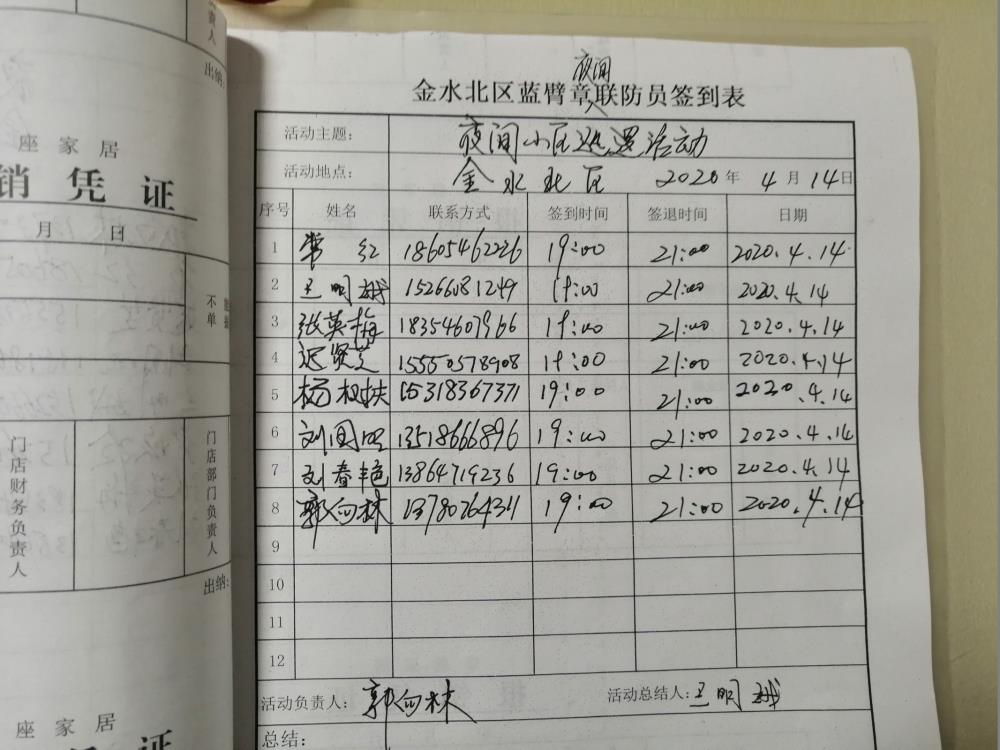 责人
出纳:
座家居
销凭证
月 日
不单
门店财务负责人
门店部门负责人
出纳:
座家居
凭证
夜间
金水北区蓝臂章联防员签到表
活动主题: 夜间小区巡逻活动
活动地点: 金水北区 2020年4月14日
序号 姓名 联系方式 签到时间 签退时间 日期
1 常红 18605462226 19:00 21:00 2020.4.14
2 王明越 15266081249 19:00 21:00 2020.4.14
3 张英梅 18354607966 19:00 21:00 2020.4.14
4 迟贤芝 15550578908 19:00 21:00 2020.4.14
5 杨权扶 15318367371 19:00 21:00 2020.4.14
6 刘国 13518666896 19:00 21:00 2020.4.14
7 刘春艳 13864719236 19:00 21:00 2020.4.14
8 郭向林 13780764311 19:00 21:00 2020.4.14
9
10
11
12
活动负责人: 郭向林 活动总结人: 王明越
总结: